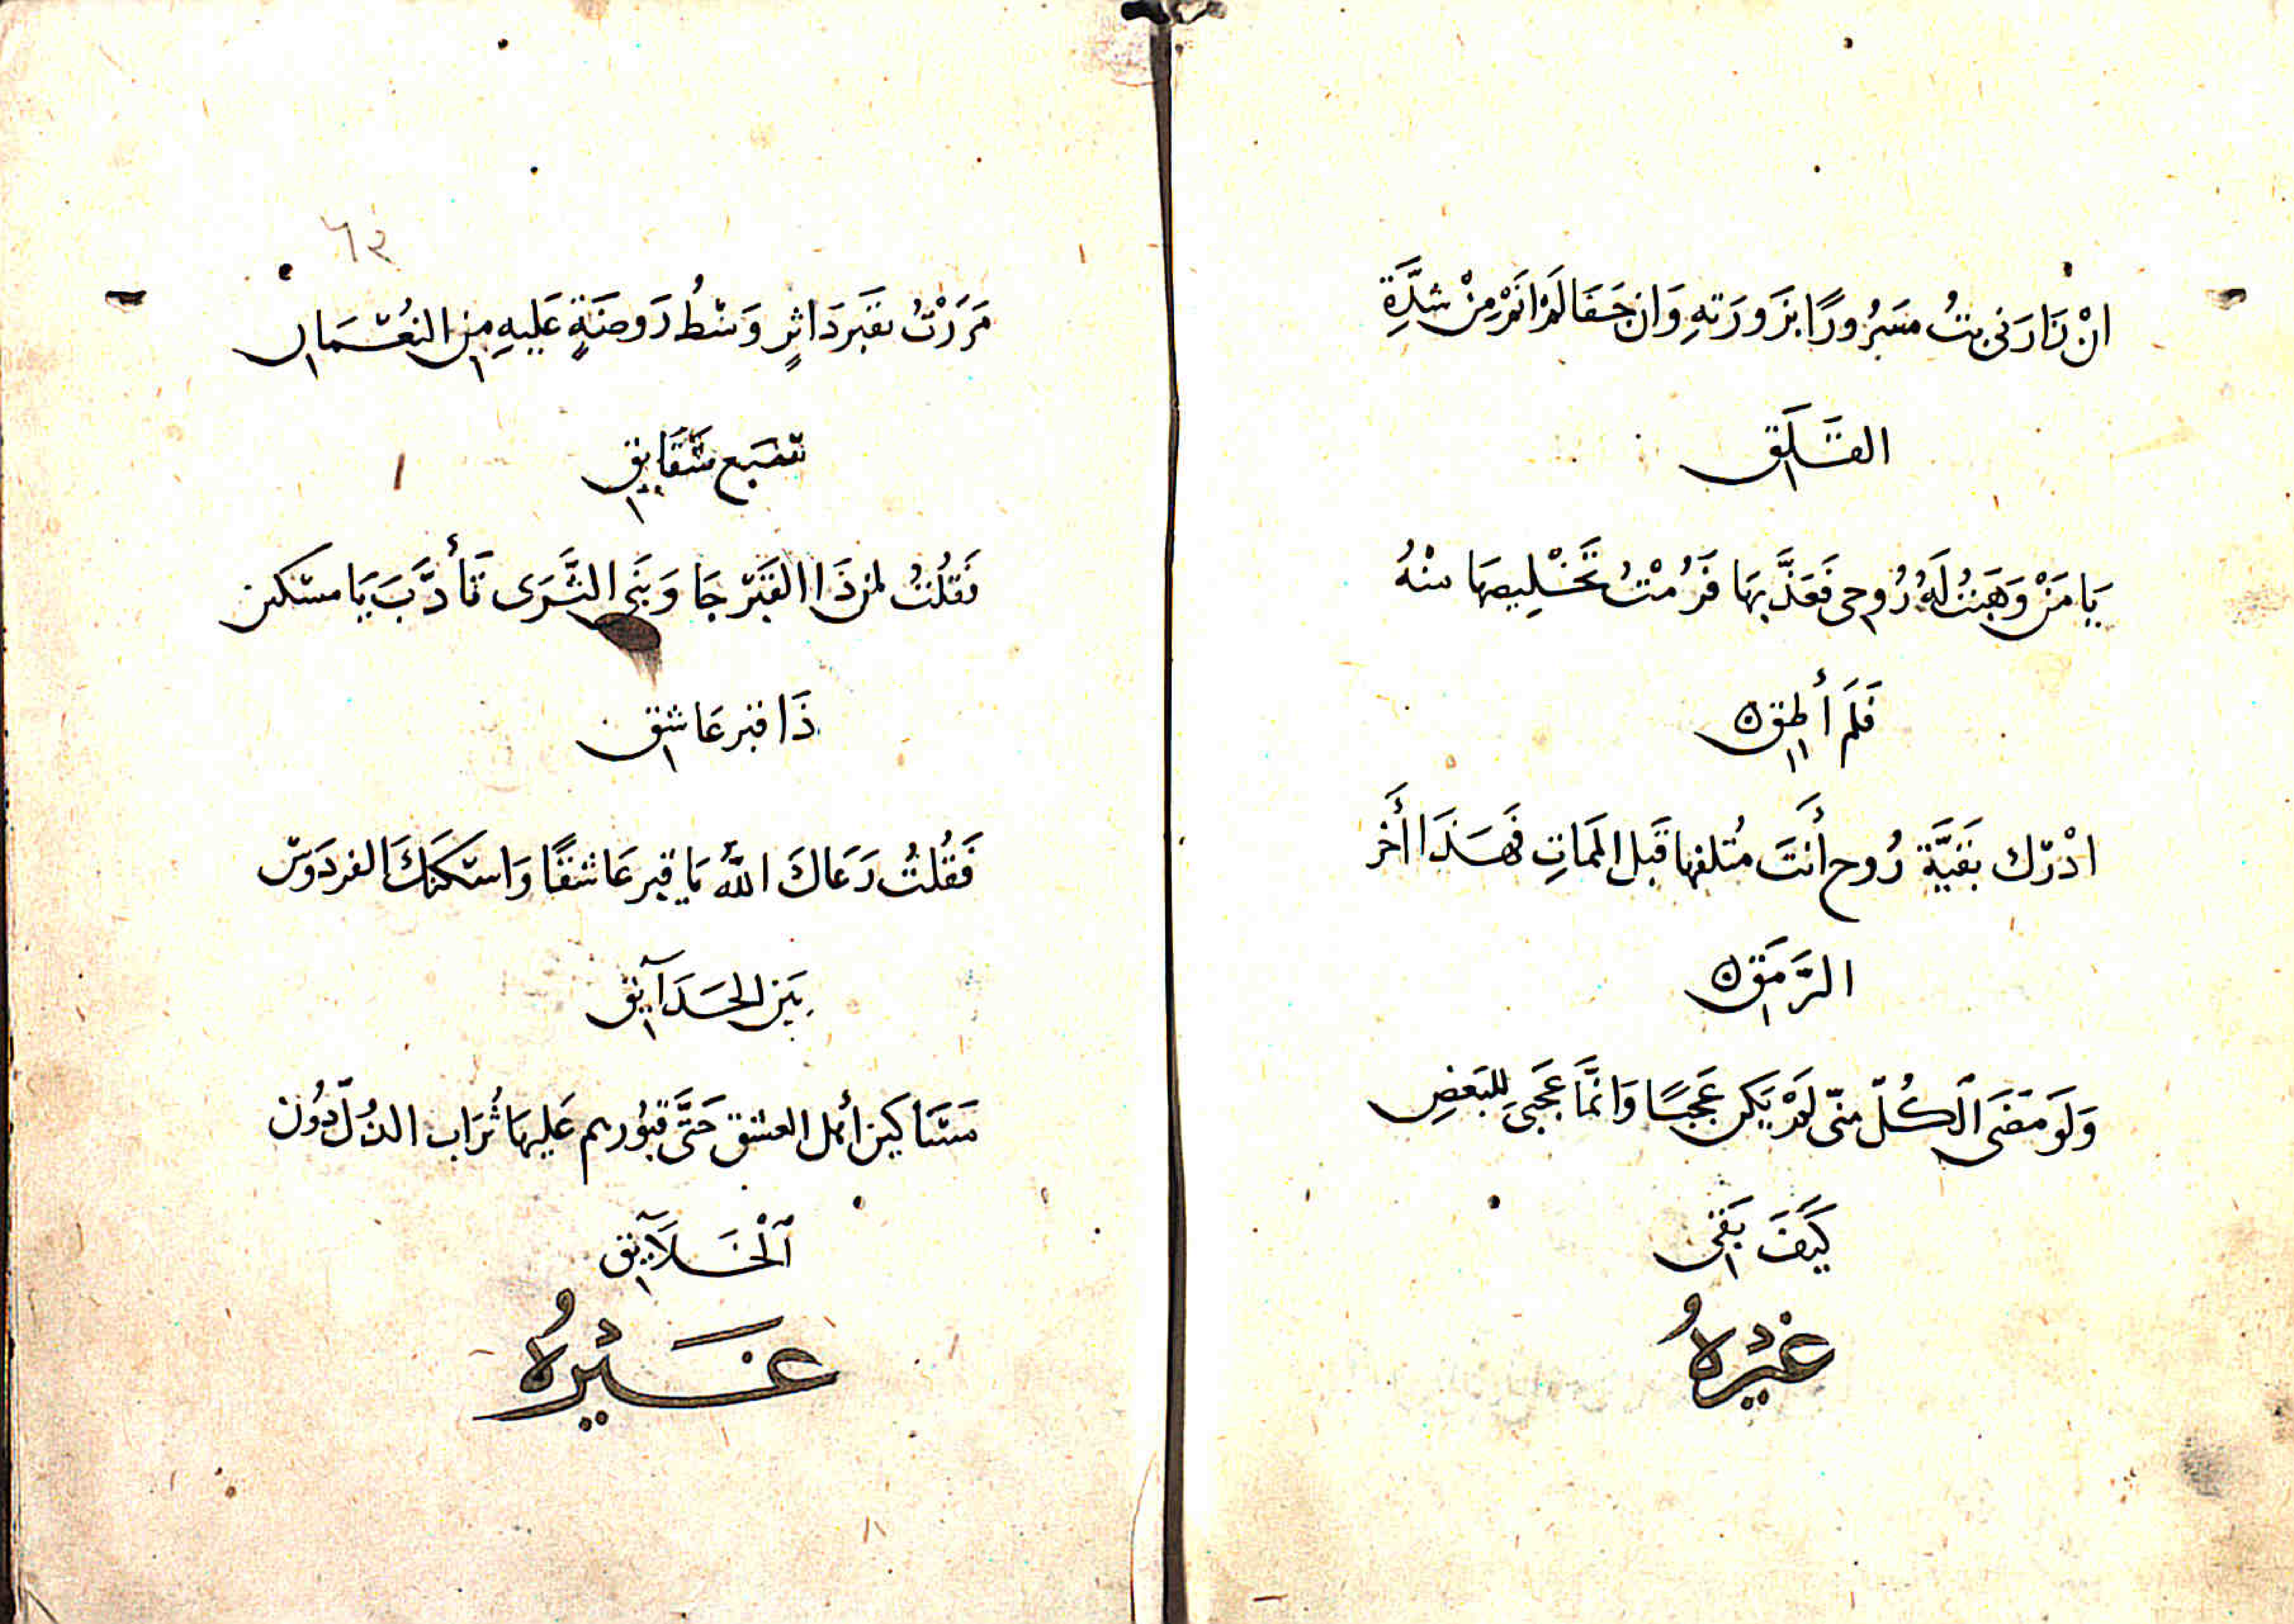 انْ زَارَنى بتُ مسَرُورًا بزَورَتهِ وَان جَفَا لَمْ انَمْ مِنْ شدَّةِ
القَلَق
يَا مَنْ وَهَبَتُ لَهُ رُوحى فَعَذَّبهَا فَرُمْتُ تَخْلِيصهَا منْهُ
فَلَم أُطِق
ادْرك بَقيَّة رُوح أَنتَ مُتلفها قَبل الممَاتِ فَهَذَا أَخر
الرَّمَق
وَلَو مَضَى ٱلكُلّ منّى لَمْ يَكن عَجَبًا وَانمَّا عَجَبىِ للبَعضِ
كَيَفَ بَقى
غَيْرُهُ
٦٣
مَرَرْتُ بقَبر دَاثرٍ وَسْطُ رَوضَةٍ عَلَيهِ مِن النعُمَان
سَبع شَقَايق
فَقلُتُ لمن ذَا القَبْر جَاوَبنَى الثَّرَى تَأَدَّبَ يَا مسْكين
ذَا قبر عَاشق
فَقُلتُ رَعَاكَ اللهُ يَا قبر عَاشقًا وَاسْكَنَكَ الفردَوسْ
بَين الحَدَآيق
مَسَاكين أهل العشق حَتَّى قبُورهم عَليهَا تُرَاب الذُلّ دُون
ٱلْخَلَآيق
غَيْرُهُ